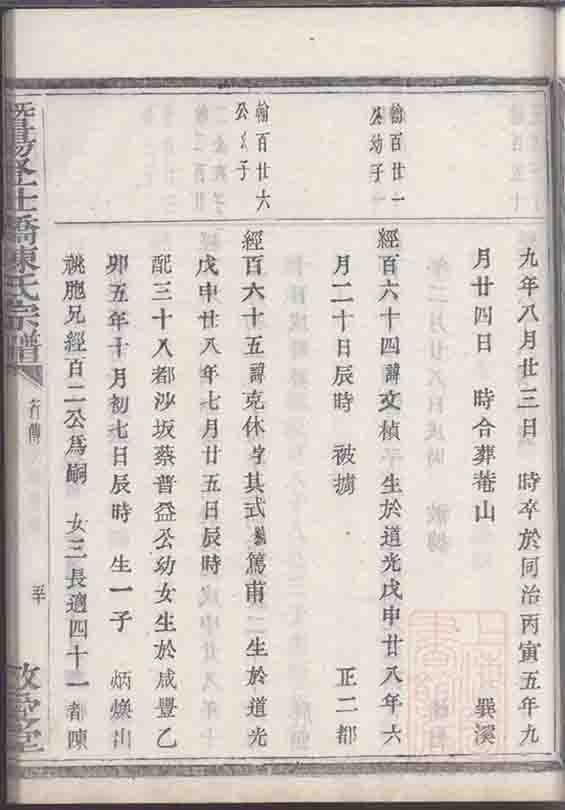 九年八月廿三日 時卒於同治丙寅五年九
月廿四日 時合葬菴山 巽溪
翰百廿一
公幼子
經百六十四諱文楨 生於道光戊申廿八年六
月二十日辰時 被擄 正二都
翰百廿六
公幺子
經百六十五諱克休字其式號篤甫 二生於道光
戊申廿八年七月廿五日辰時
配三十八都沙坂蔡普益公幼女生於咸豐乙
卯五年十月初七日辰時 生一子 炳爍出
祧胞兄經百二公爲嗣 女三長適四十一都陳
暨陽 橋陳氏宗譜
行傳